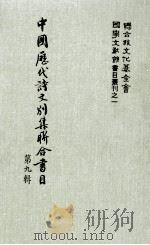 聯合報文化基金會
國學文獻館書目叢刊之一
中國歷代詩文別集聯合書目
第九輯